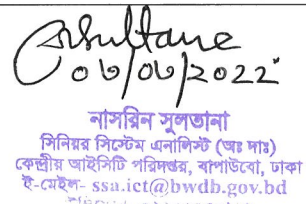 Nsultana
০৬/০৬/2022
নাসরিন সুলতানা
সিনিয়র সিস্টেম এনালিস্ট (অঃ দাঃ)
কেন্দ্রীয় আইসিটি পরিদপ্তর, বাপাউবো, ঢাকা
ই-মেইল- ssa.ict@bwdb.gov.bd